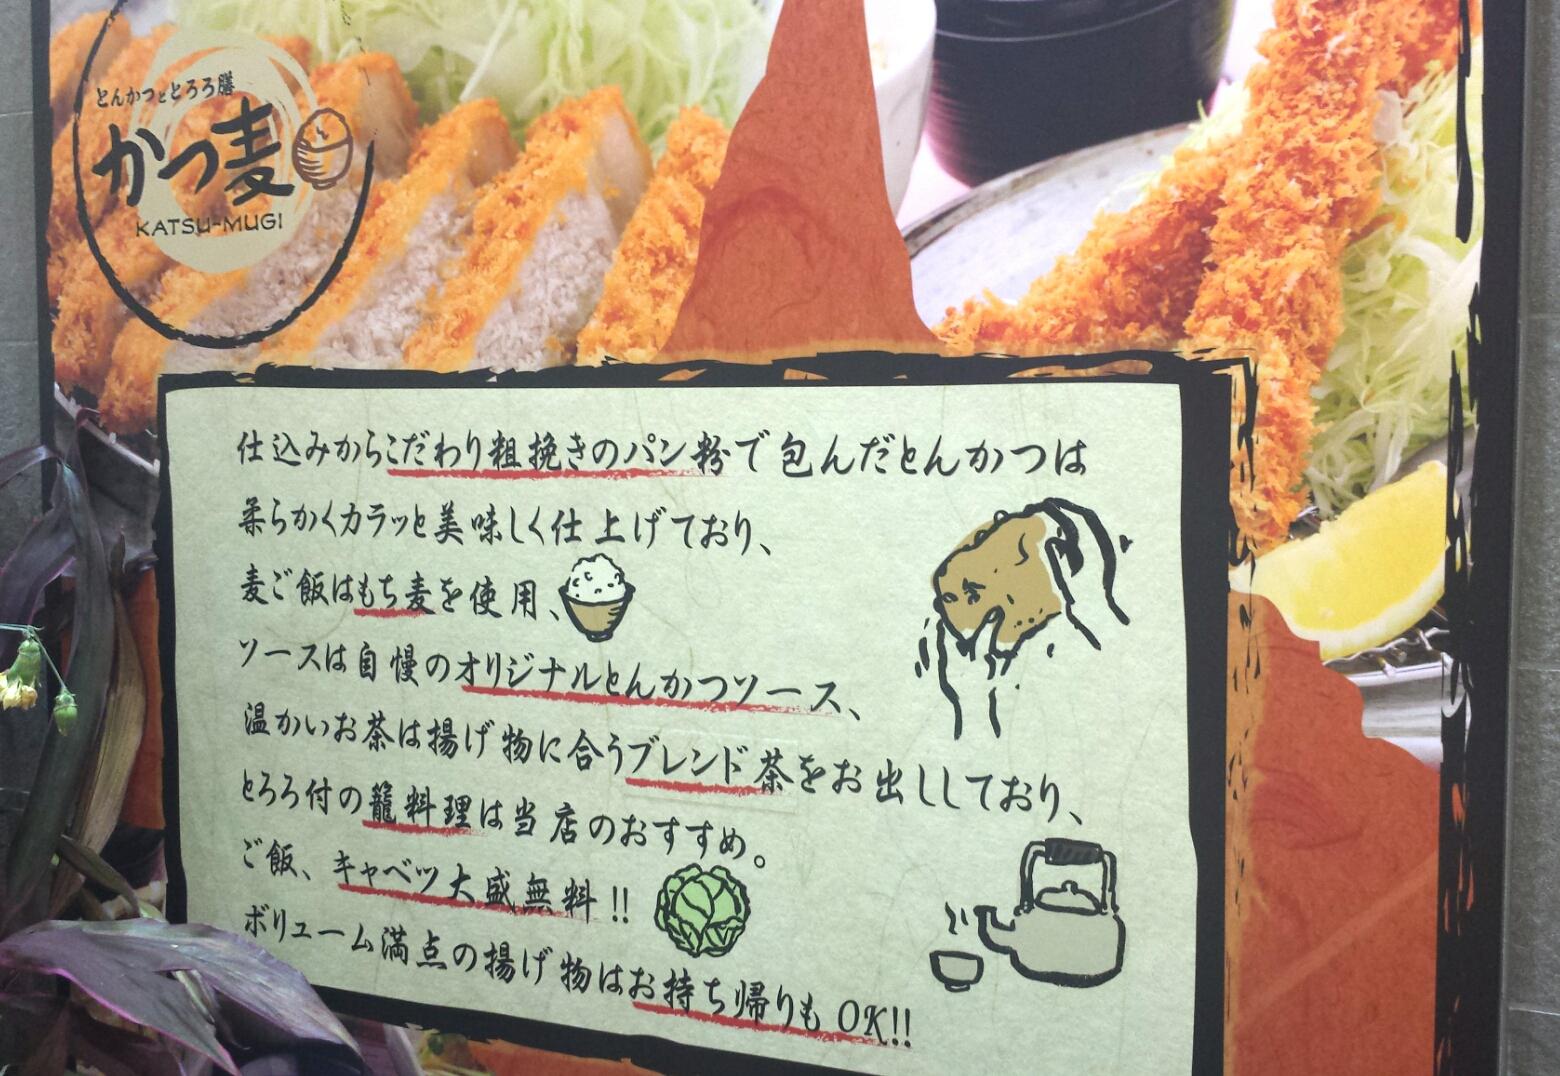 とんかつととろろ膳
かつ麦
KATSU-MUGI
仕込みからこだわり粗挽きのパン粉で包んだとんかつは
柔らかくカラッと美味しく仕上げており、
麦ご飯はもち麦を使用、
ソースは自慢のオリジナルとんかつソース、
温かいお茶は揚げ物に合うブレンド茶をお出ししており、
とろろ付の籠料理は当店のおすすめ。
ご飯、キャベツ大盛無料!!
ボリューム満点の揚げ物はお持ち帰りもOK!!